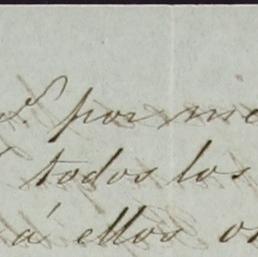 por me
todos los
á ellos